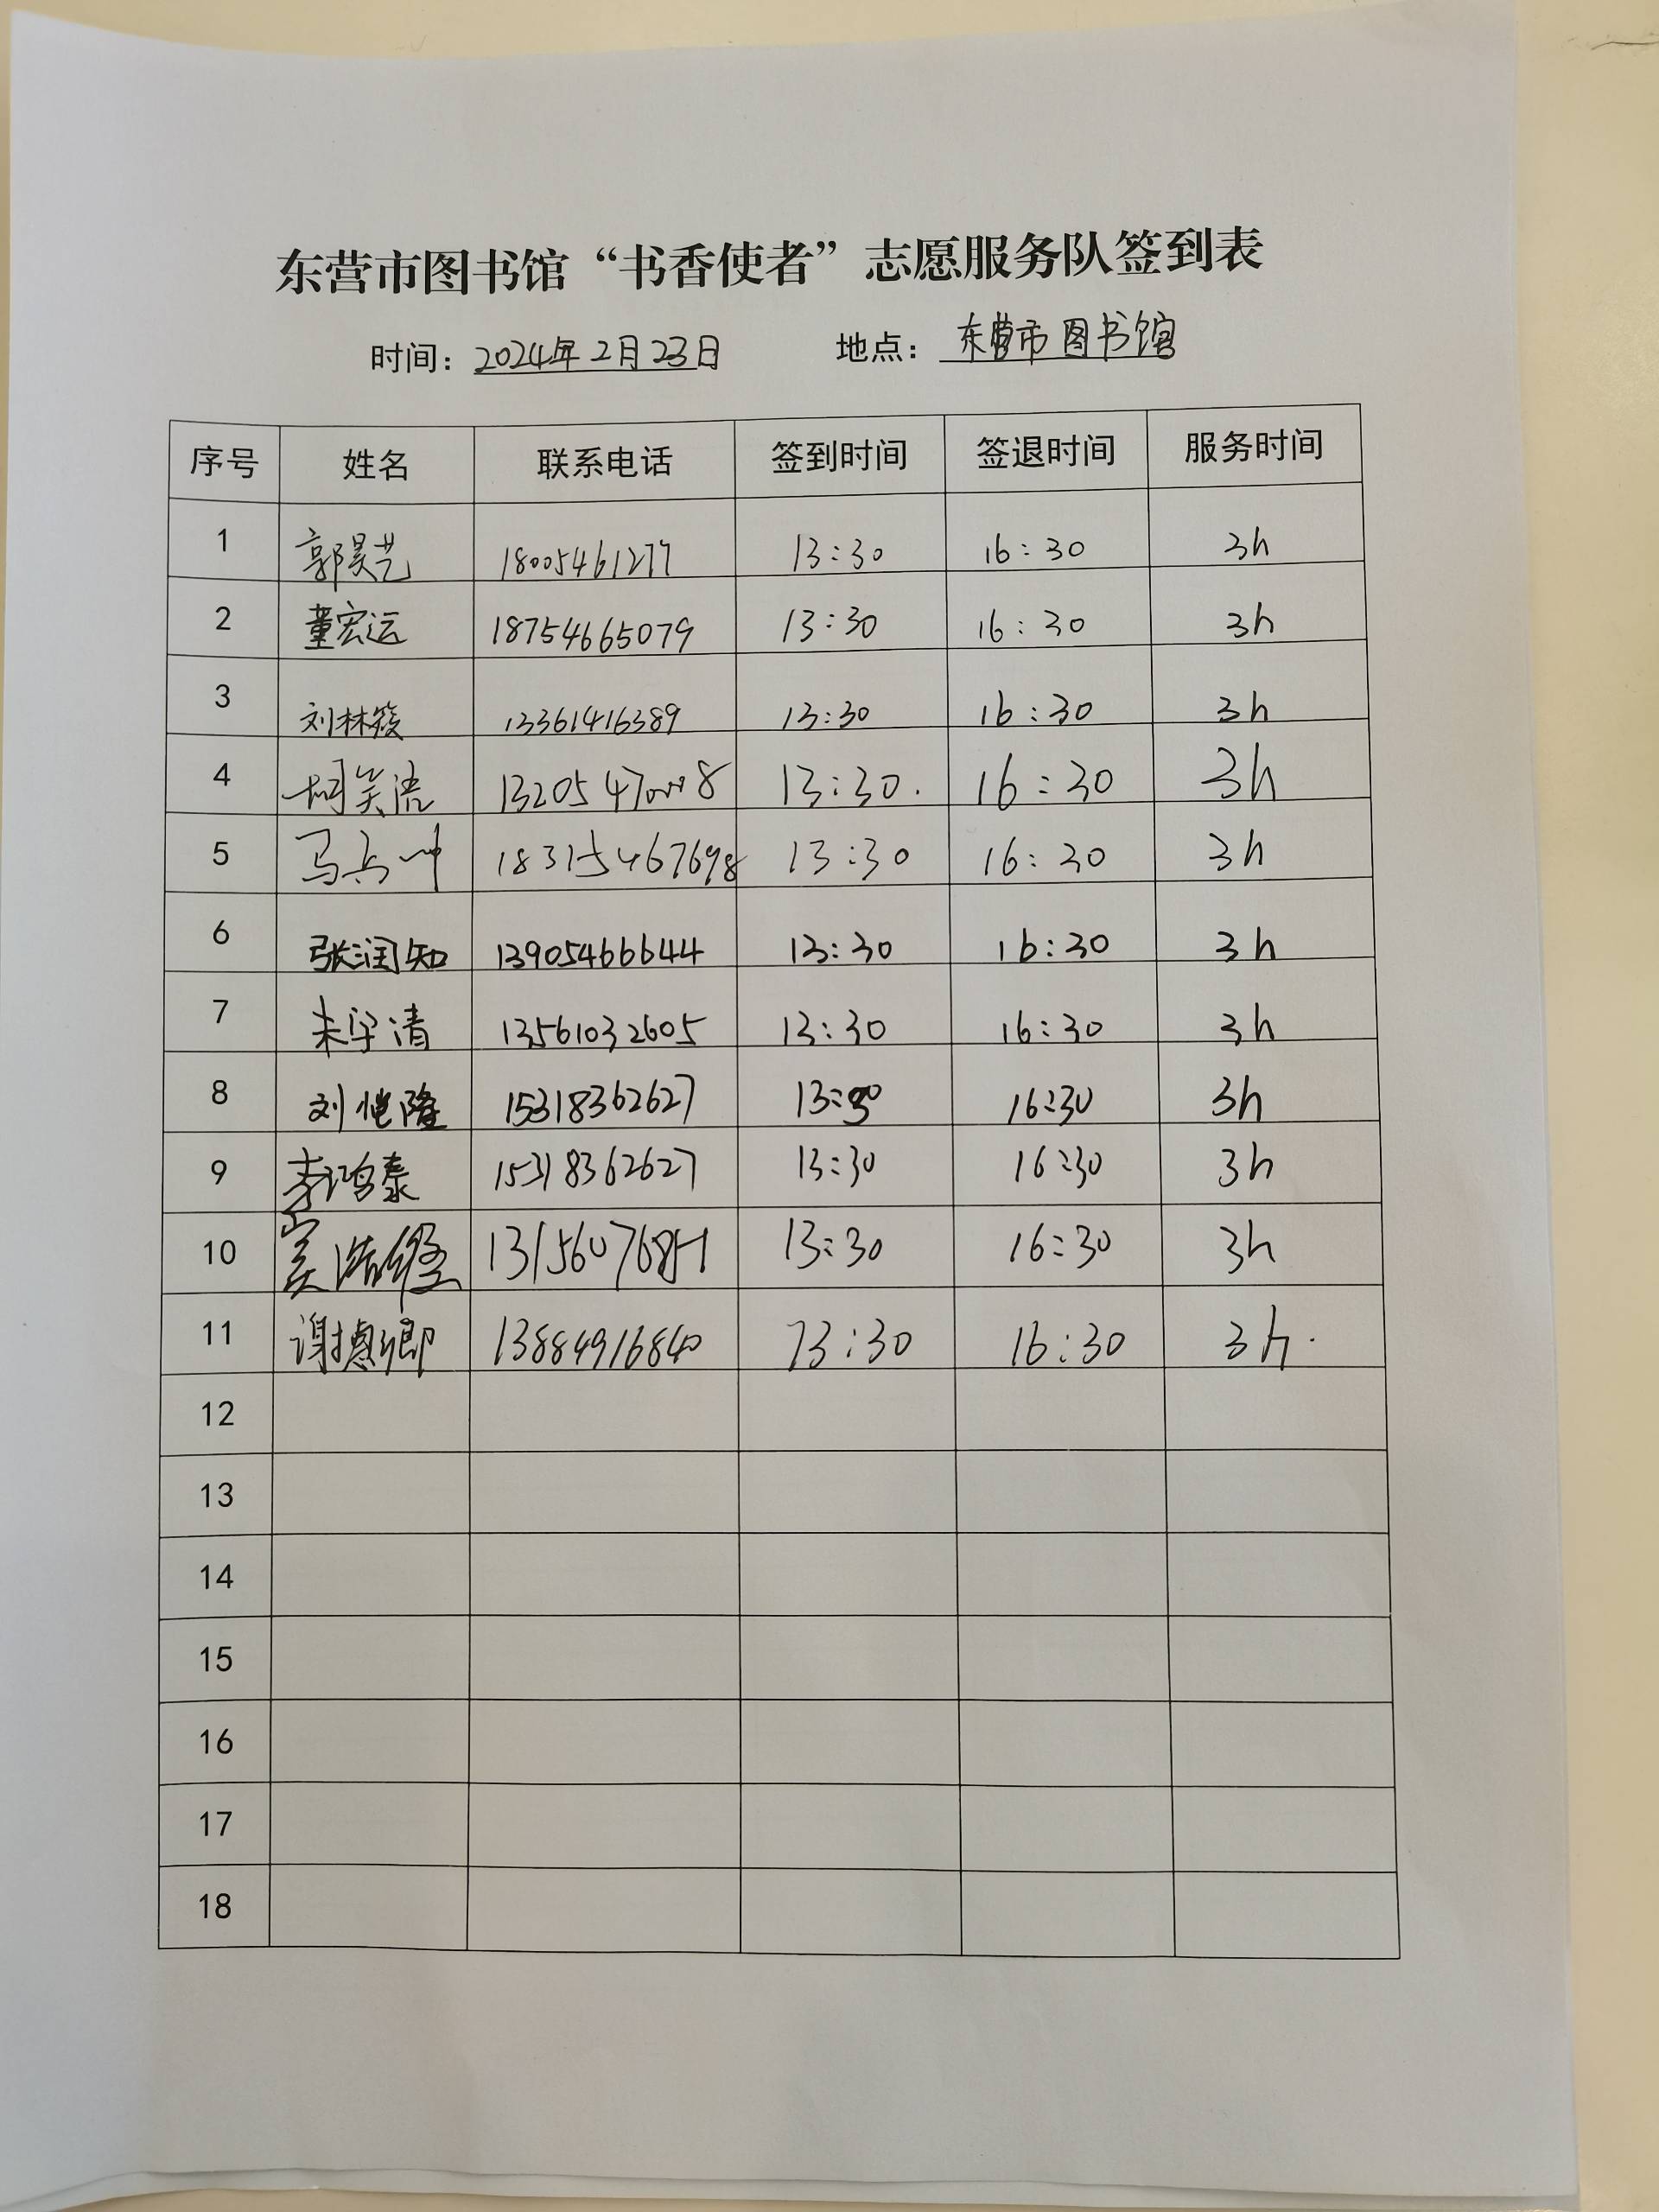 东营市图书馆“书香使者”志愿服务队签到表
时间：2024年2月23日 地点：东营市图书馆
序号 姓名 联系电话 签到时间 签退时间 服务时间
1 郭昊艺 18005461277 13:30 16:30 3h
2 董宏远 18754665079 13:30 16:30 3h
3 刘林筱 13361416389 13:30 16:30 3h
4 13:30. 16:30 3h
5 18315467698 13:30 16:30 3h
6 张润知 13905466644 13:30 16:30 3h
7 朱宇清 13561032605 13:30 16:30 3h
8 刘恺隆 15318362627 13:30 16:30 3h
9 李鸿泰 15318362627 13:30 16:30 3h
10 13:30 16:30 3h
11 13884916840 13:30 16:30 3h.
12
13
14
15
16
17
18